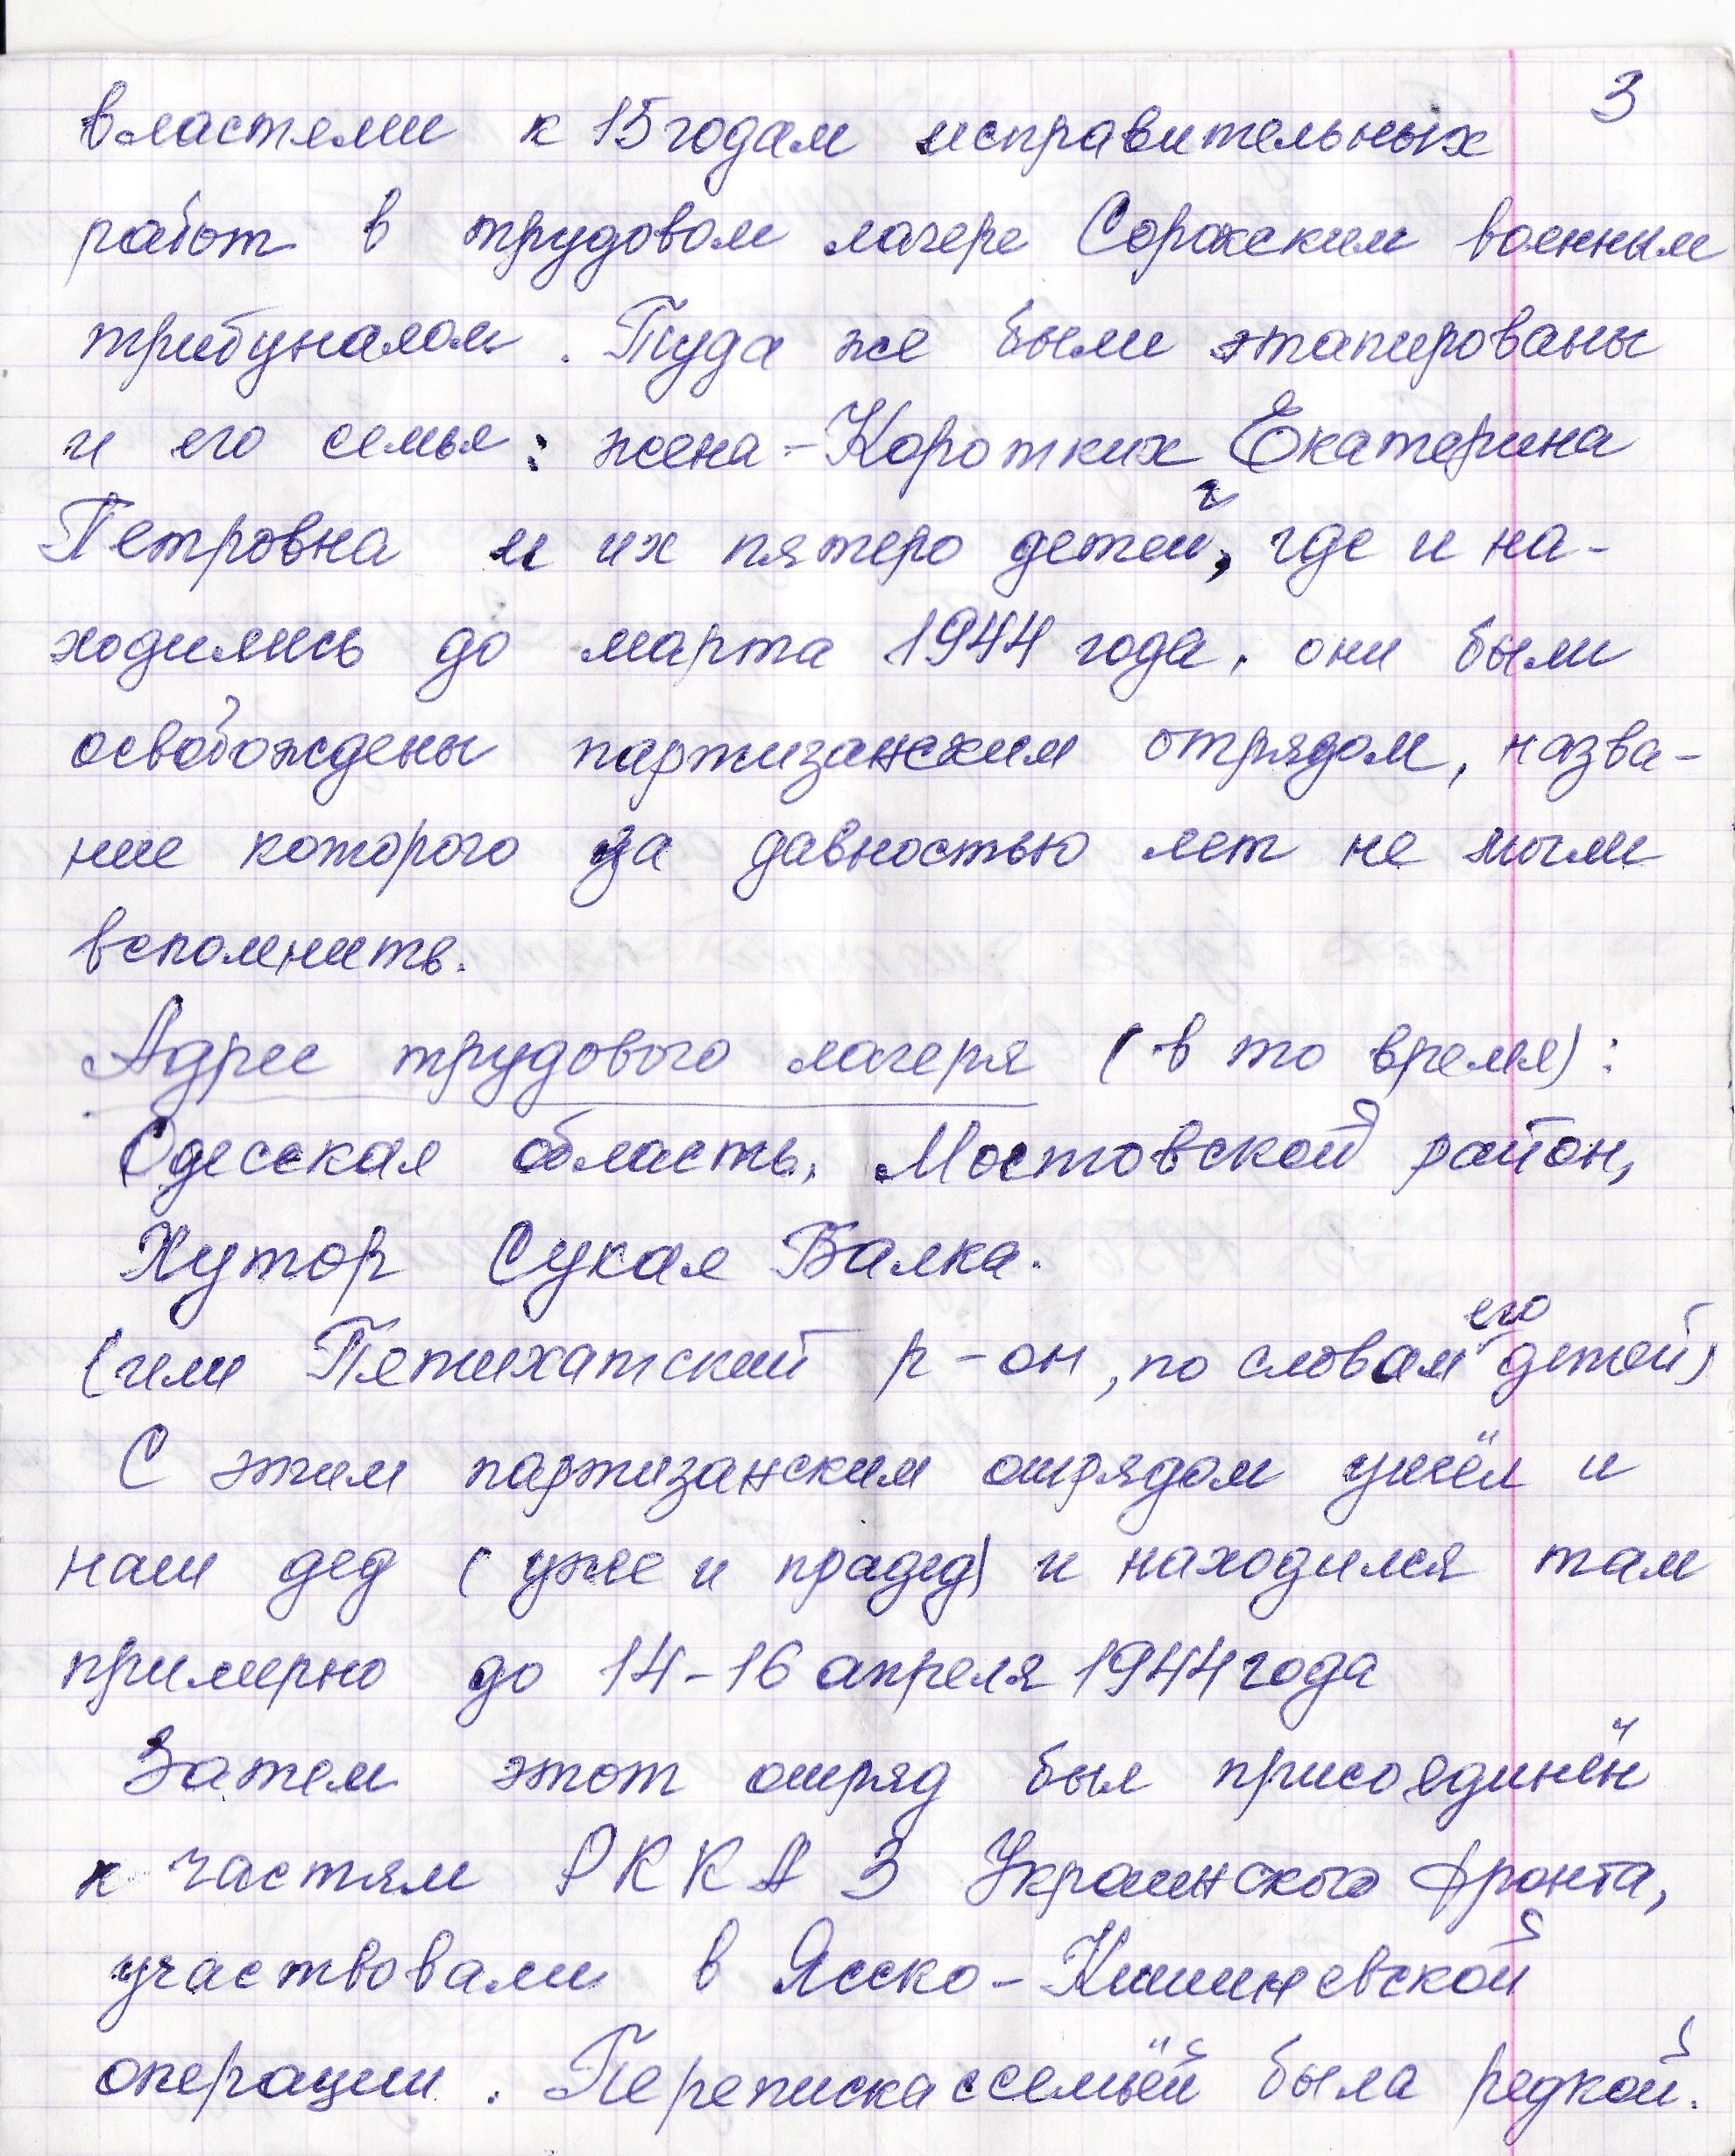 3
властями к 15 годам исправительных
работ в трудовом лагере Сорокским военным
трибуналом. Туда же были этапированы
и его семья: жена - Коротких Екатерина
Петровна и их пятеро детей, где и на-
ходились до марта 1944 года. они были
освобождены партизанским отрядом, назва-
ние которого за давностью лет не могли
вспомнить.
Адрес трудового лагеря (в то время):
Одесская область, Мостовской район,
Хутор Сукая Балка.
(или Пятихатский р-он, по словам его детей)
С этим партизанским отрядом ушёл и
наш дед (уже и прадед) и находился там
примерно до 14-16 апреля 1944 года
Затем этот отряд был присоединён
к частям РККА 3 Украинского фронта,
участвовали в Ясско-Кишиневской
операции. Переписка с семьёй была редкой.